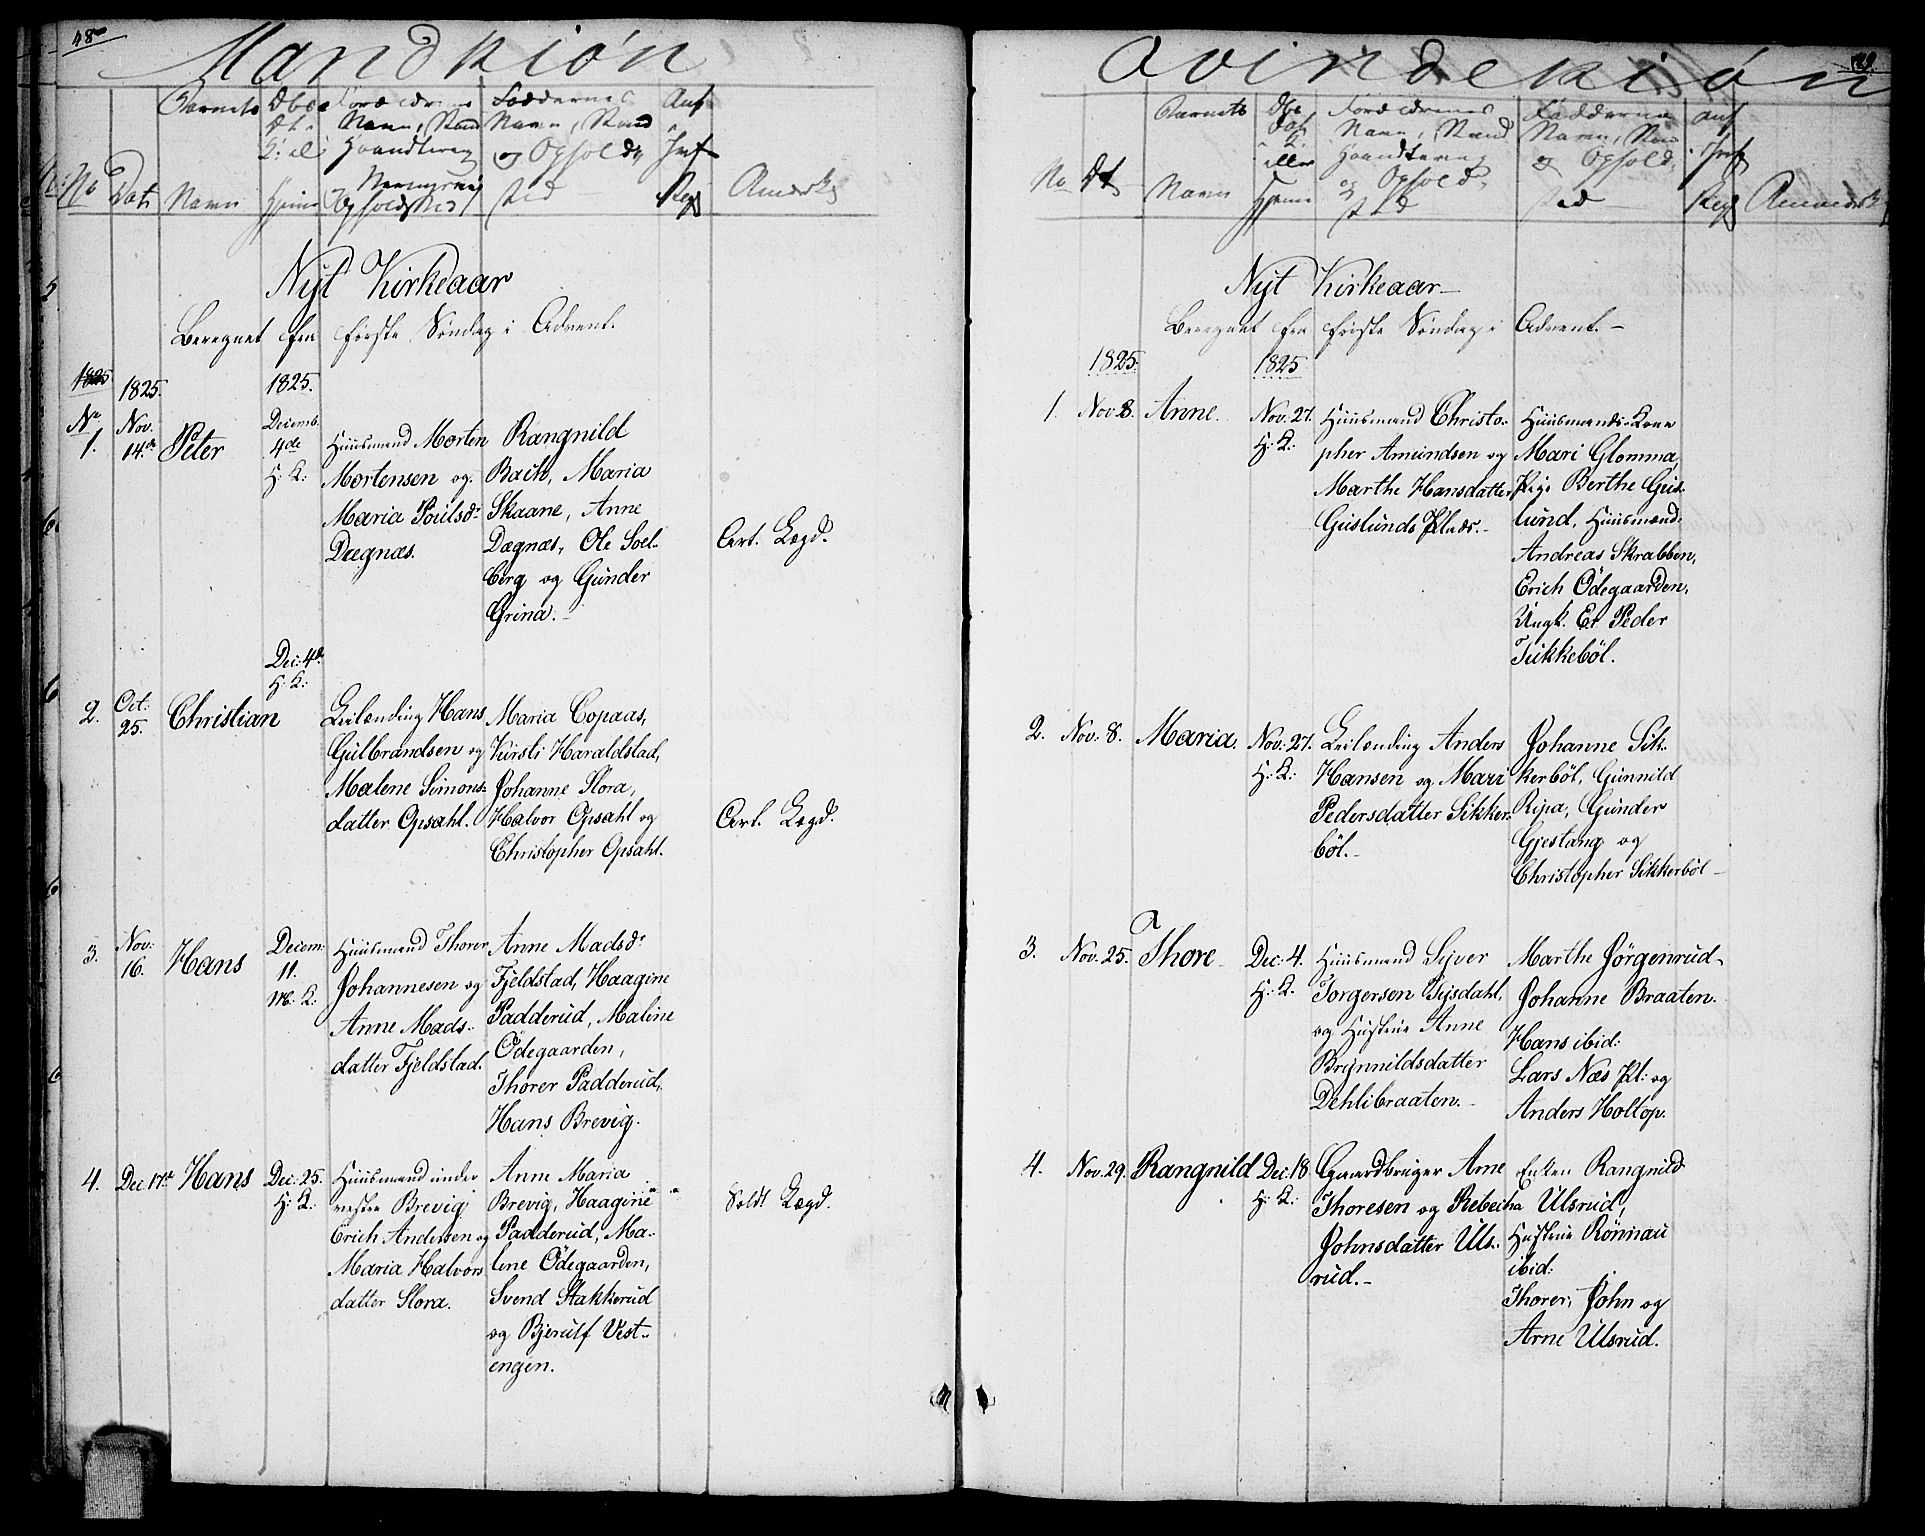 48
Mandkiøn
No
Dat.
Barnets
Navn
Dbs
Dt.
K: ell
Hjem
Forældrenes
Navn, Stand
Haandtering
og Nærings
Opholdsted
Fadderne
Navn, Stand
og Opholds
sted
Anf
i
Jnf
Reg
Anmærk
Nÿt Kirkeaar
Beregnet fra første Søndag i Advent.
1825
1825.
1825.
No
1.
Nov.
14de
Peter
Decemb.
4de
H: K:
Huusmand Morten
Mortensen og
Maria Poulsdr
Dægnæs.
Rangnild
Bach, Maria
Skaane, Anne
Dægnæs, Ole Soel-
berg og Gunder
Grina.
Cart. Lægd.
2.
Oct.
25.
Christian
Dec: 4de
H: K:
Leilænding Hans
Gulbrandsen og
Malene Simons-
datter Opsahl.
Maria Copaas,
Kirsti Haraldstad,
Johanne Slora,
Halvor Opsahl og
Christopher Opsahl.
Cart. Lægd.
3.
Nov:
16.
Hans
Decem:
11.
M: K.
Huusmand Thorer
Johannesen og
Anne Mads-
datter Fjeldstad.
Anne Madsdr
Fjeldstad, Haagine
Padderud, Maline
Ödegaarden,
Thorer Padderud,
Hans Brevig.
4.
Dec 17de
Hans
Dec: 25.
H: K:
Huusmand under
Brevig
Erich Andersen og
Maria Halvors
datter Slora.
Anne Maria
Brevig, Haagine
Padderud, Ma-
lene Ödegaarden,
Svend Stakkerud
og Bjerulf Vest-
engen.
Soldt Lægd.
Qvindekiøn
No
Dt
Barnets
Navn
Dbs
Dat
K.
eller
Hjem
Forældrenes
Navn, Stand
Haandtering
og Ophold,
sted
Faddernes
Navn, Stan
og Ophold,
sted
Anf
i Jnf
Reg
Anmærk
Nÿt Kirkeaar
Beregnet fra første Søndag i Advent.
1825.
1825
1.
Nov: 8.
Anne.
Nov: 27.
H: K:
Huusmand Christo-
pher Amundsen og
Marthe Hansdatter
Guslunds Plads.
Huusmands-Kone
Mari Glomma,
Pige Berthe Gus-
lund, Huusmænd:
Andreas Skrabben,
Erich Ödegaarden,
Ungk. Er Peder
Tukkeböl.
2.
Nov: 8.
Maria.
Nov: 27.
H: K:
Leilænding Anders
Hansen og Mari
Pedersdatter Sikker-
böl.
Johanne Sik-
kerböl, Gunnild
Ripa, Gunder
Gjestang og
Christopher Sikkerböl
3.
Nov. 25.
Thore
Dec: 4.
H: K.
Huusmand Sÿver
Torgersen Sejsdahl,
og Hustrue Anne
Brynnildsdatter
Dehlibraaten.
Marthe Jörgenrud
Johanne Braaten.
Hans ibid:
Lars Næs Pl: og
Anders Holtop.
4.
Nov. 29.
Rangnild
Dec: 18.
H: K:
Gaardbruger Arne
Thoresen og Rebecha
Johnsdatter Uls-
rud.
Enken Rangnild
Ulsrud,
Hustrue Rönnau
ibid:
Thorer, John og
Arne Ulsrud.